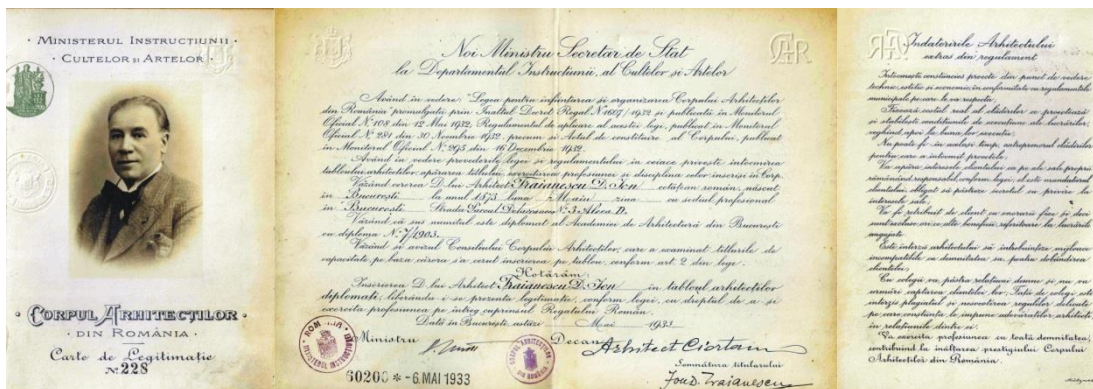 · MINISTERUL INSTRUCȚIUNII ·
· CULTELOR ȘI ARTELOR ·
· CORPUL ARHITECȚILOR ·
· DIN ROMÂNIA ·
Carte de Legitimație
Nº 228
Noi Ministru Secretar de Stat
la Departamentul Instrucțiunii, al Cultelor și Artelor
Având în vedere "Legea pentru înființarea și organizarea Corpului Arhitecților
din România" promulgată prin Inaltul Decret Regal Nº1667/1932 și publicată în Monitorul
Oficial Nº108 din 12 Mai 1932; Regulamentul de aplicare al acestei legi, publicat în Monitorul
Oficial Nº 281 din 30 Noembrie 1932, precum și Actul de constituire al Corpului, publicat
în Monitorul Oficial Nº 295 din 16 Decembrie 1932.
Având în vedere prevederile legii și regulamentului în ceiace privește întocmirea
tabloului arhitecților, apărarea titlului, exercitarea profesiunei și disciplina celor înscriși în Corp.
Văzând cererea D-lui Arhitect Traianescu D. Ion cetățean român, născut
în București la anul 1875 luna Main ziua cu sediul profesional
în București Strada Nº 3 Aleea D.
Văzând că sus numitul este diplomat al Academiei de Arhitectură din București
cu diploma Nº 7/1903.
Văzând și avizul Consiliului Corpului Arhitecților, care a examinat titlurile de
capacitate, pe baza cărora s'a cerut inscrierea pe tablou, conform art. 2 din lege.
Hotărâm:
Inscrierea D-lui Arhitect Traianescu D. Ion în tabloul arhitecților
diplomați, liberându-i se prezenta legitimație, conform legei, cu dreptul de a-și
exercita profesiunea pe întreg cuprinsul Regatului Român.
Dată în București astăzi Mai 1933
Ministru
Decan
Arhitect Ciortan
Semnătura titularului
Ion D. Traianescu
60200 * - 6. MAI 1933
Indatoririle Arhitectului
extras din regulament
Intocmește conștiincios proecte din punct de vedere
technic, estetic și economic, în conformitate cu regulamentele
municipale pe care le va respecta.
Fixează costul real al clădirilor ce proectează
și stabilește condițiunile de executare ale lucrărilor,
veghind apoi la buna lor execuție.
Nu poate fi în același timp, antreprenorul clădirilor
pentru care a întocmit proectele.
Va apăra interesele clientului ca pe ale sale proprii
rămânând responsabil, conform legei; el este mandatarul
clientului, obligat să păstreze secretul cu privire la
interesele sale.
Va fi retribuit de client cu onorarii fixe și deci
sunt excluse orice alte beneficii, referitoare la lucrările
angajate.
Este interzis arhitectului să intrebuințeze mijloace
incompatibile cu demnitatea sa, pentru dobândirea
clientelei.
Cu colegii va păstra relațiuni demne și nu va
urmări captarea clientelei lor. Față de colegi este
interzis plagiatul și nesocotirea regulilor delicate
pe care conștiința le impune adevăraților arhitecți
în relațiunile dintre ei.
Va exercita profesiunea cu toată demnitatea,
contribuind la înălțarea prestigiului Corpului
Arhitecților din România.